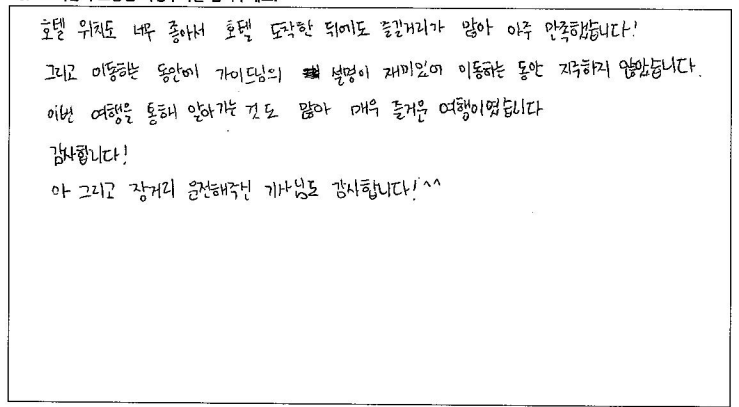 호텔 위치도 너무 좋아서 호텔 도착한 뒤에도 즐길거리가 많아 아주 만족했습니다!
그리고 이동하는 동안에 가이드님의 설명이 재미있어 이동하는 동안 지루하지 않았습니다.
이번 여행을 통해 알아가는 것도 많아 매우 즐거운 여행이였습니다
감사합니다!
아 그리고 장거리 운전해주신 기사님도 감사합니다!^^